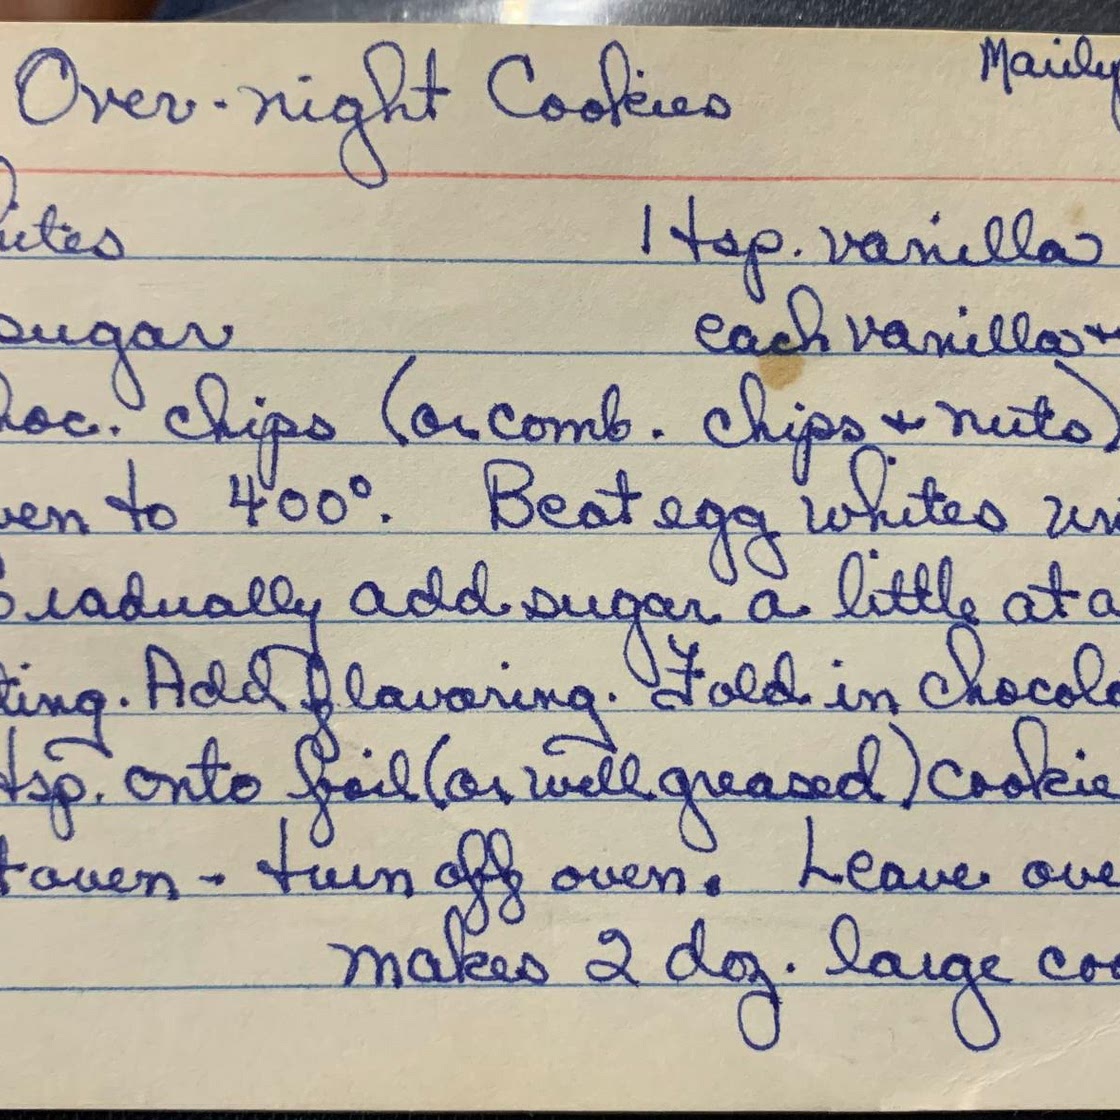 Over-night Cookies Marily
hites 1 tsp. vanilla
sugar each vanilla +
hoc. chips (or comb. chips + nuts)
ven to 400°. Beat egg whites un
Gradually add sugar a little at a
ting. Add flavoring. Fold in chocol
tsp. onto foil (or well greased) cookie
t oven - turn off oven. Leave ove
makes 2 doz. large coo